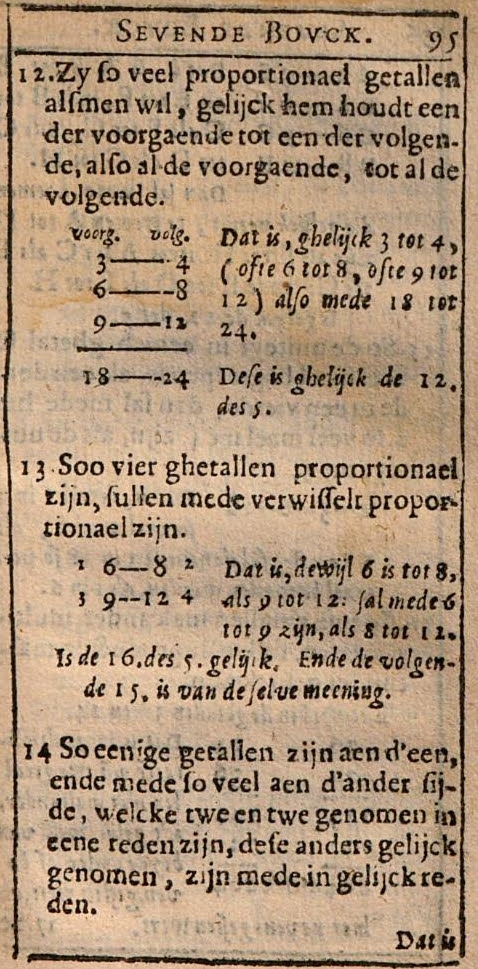 SEVENDE BOVCK. 95
12. Zy ſo veel proportionael getallen
alſmen wil, gelijck hem houdt een
der voorgaende tot een der volgen-
de, alſo al de voorgaende, tot al de
volgende.
voorg. volg. Dat is, ghelijck 3 tot 4,
3——4 (ofte 6 tot 8, ofte 9 tot
6——8 12) alſo mede 18 tot
9——12 24.
18——24 Deſe is ghelijck de 12.
des 5.
13 Soo vier ghetallen proportionael
zijn, ſullen mede verwiſſelt propor-
tionael zijn.
1 6—8 2 Dat is, dewijl 6 is tot 8,
3 9--12 4 als 9 tot 12: ſal mede 6
tot 9 zijn, als 8 tot 12.
Is de 16. des 5. gelijck. Ende de volgen-
de 15, is van de ſelve meening.
14 So eenige getallen zijn aen d'een,
ende mede ſo veel aen d'ander ſij-
de, welcke twe en twe genomen in
eene reden zijn, deſe anders gelijck
genomen, zijn mede in gelijck re-
den.
Dat is